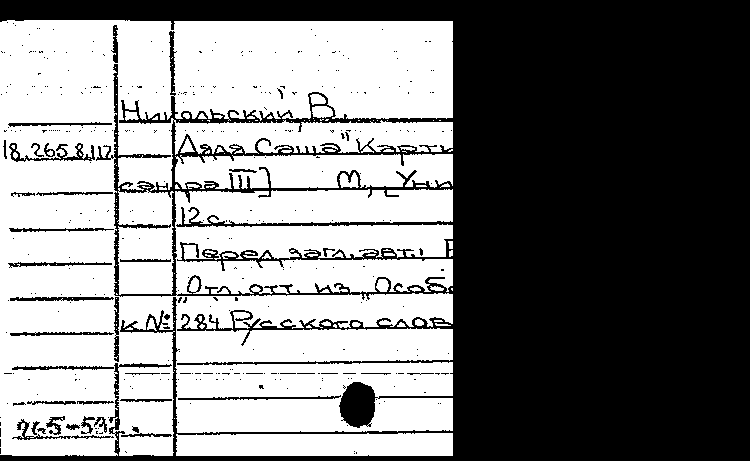 Никольский, В.
18.265.8.117 "Дядя Саша" Карти
сандра III] М., [Уни
12 с.
Перед загл. авт.: В
"Отл. отт. из "Особо
к № 284 Русского слов
965-592.